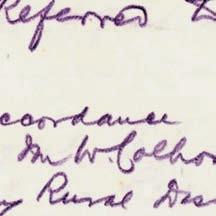 Referred
ccordance
W. Colho
Rural Dis